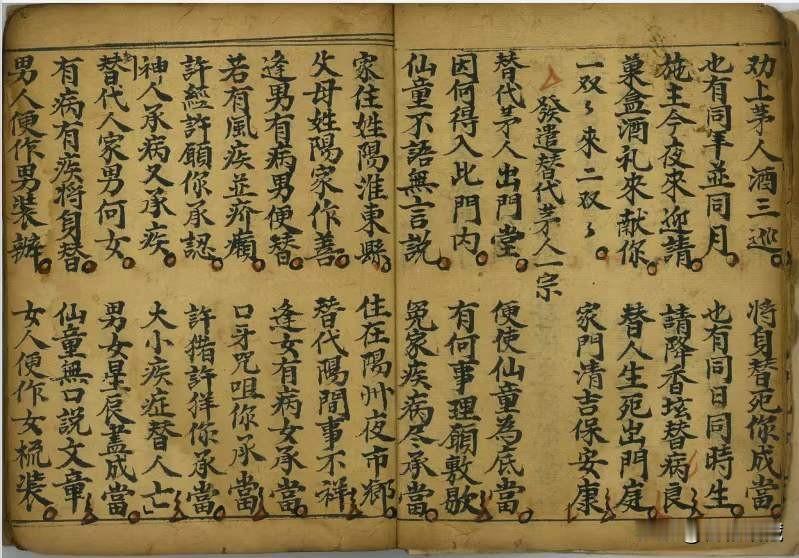 劝上茅人酒三巡 将身替死你成當
也有同年並同月 也有同日同時生
施主今夜來迎請 請降香坛替病良
菓盒酒礼來献你 替人生死出門庭
一双〻來二双〻 家門清吉保安康
發遣替代茅人一宗
替代茅人出門堂 便使仙童為底當
因何得入比門内 有何事理願敷歇
仙童不語無言説 冤家疾病尽承當
家住姓陽淮東縣 住在陽州夜市鄉
父母姓陽家作善 替代陽間事不祥
逢男有病男便替 逢女有病女承當
若有風疾並疥癩 口牙咒咀你承當
許經許願你承認 許猪許样你承當
神人承病又承疾 大小疾症替人亡
替代人家男何女 男女星辰蓋成當
有病有疾将身替 仙童無口説文章
男人便作男装辦 女人便作女梳装